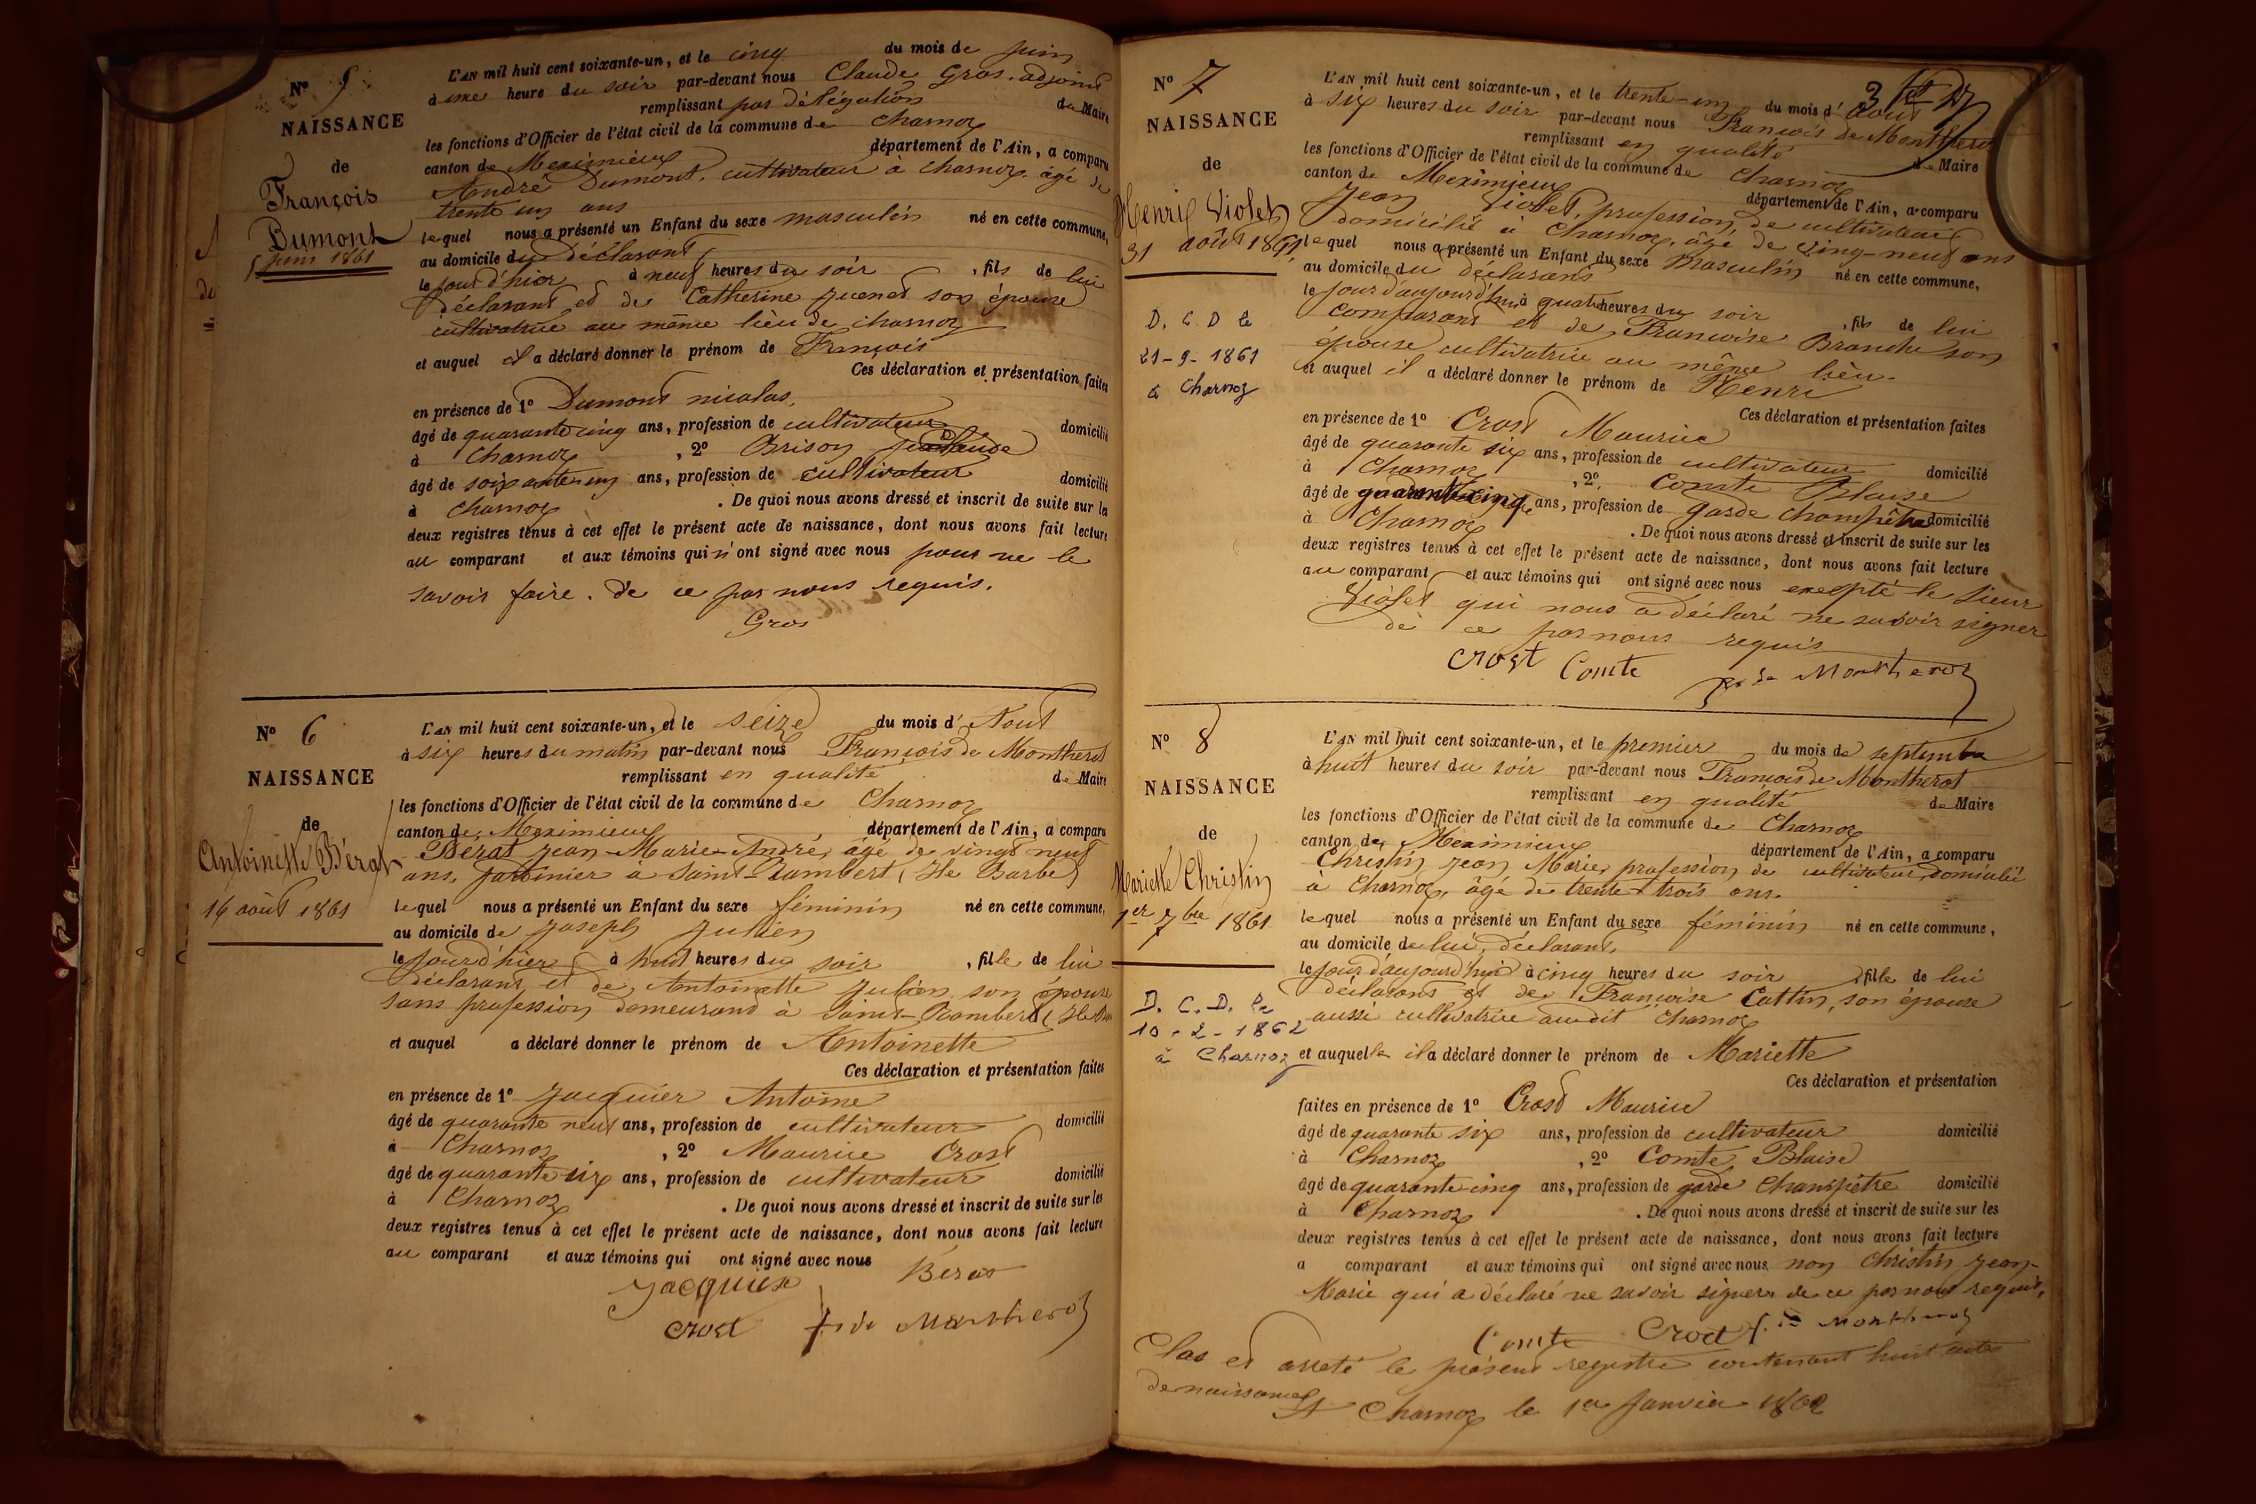 Nº 5
NAISSANCE
de
François
Dumont
5 juin 1861
L'AN mil huit cent soixante-un, et le cinq du mois de juin
à une heure du soir par-devant nous Claude Gros, adjoint
remplissant par délégation du Maire
les fonctions d'Officier de l'état civil de la commune de Charnoz
canton de Meximieux département de l'Ain, a comparu
André Dumont, cultivateur à Charnoz, âgé de
trente un ans
lequel nous a présenté un Enfant du sexe masculin né en cette commune,
au domicile du déclarant
le jour d'hier à neuf heures du soir, fils de lui
déclarant et de Catherine Juenet son épouse
cultivatrice au même lieu de Charnoz
et auquel il a déclaré donner le prénom de François
Ces déclaration et présentation faites
en présence de 1º Dumont nicolas,
âgé de quarante cinq ans, profession de cultivateur domicilié
à Charnoz, 2º Brison Claude
âgé de soixante-un ans, profession de cultivateur domicilié
à Charnoz. De quoi nous avons dressé et inscrit de suite sur les
deux registres tenus à cet effet le présent acte de naissance, dont nous avons fait lecture
au comparant et aux témoins qui n'ont signé avec nous pour ne le
savoir faire. de ce par nous requis.
Gros
Nº 6
NAISSANCE
de
Antoinette Bérat
16 août 1861
L'AN mil huit cent soixante-un, et le seize du mois d'Aout
à six heures du matin par-devant nous François de Montherot
remplissant en qualité de Maire
les fonctions d'Officier de l'état civil de la commune de Charnoz
canton de Meximieux département de l'Ain, a comparu
Bérat Jean-Marie-André, âgé de vingt neuf
ans, jardinier a Saint-Rambert (Ile Barbe)
lequel nous a présenté un Enfant du sexe féminin né en cette commune,
au domicile de Joseph Julien
le jour d'hier à huit heures du soir, fille de lui
déclarant et de Antoinette Julien, son épouse
sans profession demeurant à Saint-Rambert (Ile
et auquel a déclaré donner le prénom de Antoinette
Ces déclaration et présentation faites
en présence de 1º Jacquier Antoine
âgé de quarante neuf ans, profession de cultivateur domicilié
à Charnoz, 2º Maurice Crost
âgé de quarante six ans, profession de cultivateur domicilié
à Charnoz. De quoi nous avons dressé et inscrit de suite sur les
deux registres tenus à cet effet le présent acte de naissance, dont nous avons fait lecture
au comparant et aux témoins qui ont signé avec nous
Jacquier Bérat
Crost f. de Montherot
Nº 7
NAISSANCE
de
Henri Violet
31 août 1861
D. C. D le
21-9-1861
à Charnoz
3
L'AN mil huit cent soixante-un, et le trente-un du mois d'aout
à six heures du soir par-devant nous François de Montherot
remplissant en qualité de Maire
les fonctions d'Officier de l'état civil de la commune de Charnoz
canton de Meximieux département de l'Ain, a comparu
Jean Violet, profession, de cultivateur
domicilié à Charnoz, âgé de vingt-neuf ans
lequel nous a présenté un Enfant du sexe masculin né en cette commune,
au domicile du déclarant
le jour d'aujourd'hui à quatre heures du soir, fils de lui
comparant et de Françoise Branche son
épouse cultivatrice au même lieu.
et auquel il a déclaré donner le prénom de Henri
Ces déclaration et présentation faites
en présence de 1º Crost Maurice
âgé de quarante six ans, profession de cultivateur domicilié
à Charnoz, 2º Comte Blaise
âgé de quarante cinq ans, profession de garde champêtre domicilié
à Charnoz. De quoi nous avons dressé et inscrit de suite sur les
deux registres tenus à cet effet le présent acte de naissance, dont nous avons fait lecture
au comparant et aux témoins qui ont signé avec nous excepté le sieur
Violet qui nous a déclaré ne savoir signer
de ce par nous requis
Crost Comte f. de Montherot
Nº 8
NAISSANCE
de
Mariette Christin
1er 7bre 1861
D. C. D. le
10-2-1862
à Charnoz
L'AN mil huit cent soixante-un, et le premier du mois de septembre
à huit heures du soir par-devant nous François de Montherot
remplissant en qualité de Maire
les fonctions d'Officier de l'état civil de la commune de Charnoz
canton de Meximieux département de l'Ain, a comparu
Christin Jean Marie, profession de cultivateur, domicilié
à Charnoz, âgé de trente-trois ans.
lequel nous a présenté un Enfant du sexe féminin né en cette commune,
au domicile de lui, déclarant,
le jour d'aujourd'hui à cinq heures du soir, fille de lui
déclarant et de Françoise Cattin, son épouse
aussi cultivatrice audit Charnoz
et auquelle il a déclaré donner le prénom de Mariette
Ces déclaration et présentation
faites en présence de 1º Crost Maurice
âgé de quarante six ans, profession de cultivateur domicilié
à Charnoz, 2º Comte Blaise
âgé de quarante-cinq ans, profession de garde champêtre domicilié
à Charnoz. De quoi nous avons dressé et inscrit de suite sur les
deux registres tenus à cet effet le présent acte de naissance, dont nous avons fait lecture
a comparant et aux témoins qui ont signé avec nous non Christin Jean-
Marie qui a déclaré ne savoir signer de ce par nous requis,
Comte Crost f. de Montherot
Clos et arreté le présent registre contenant huit actes
de naissances
Charnoz le 1er Janvier 1862